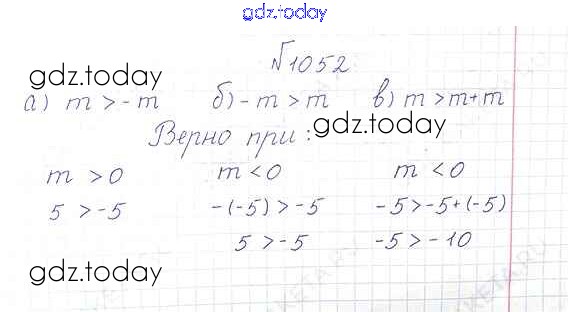 gdz.today
№1052
gdz.today
а) m > -m   б) -m > m   в) m > m + m
gdz.today
Верно при:
m > 0   m < 0   m < 0
5 > -5   -(-5) > -5   -5 > -5 + (-5)
5 > -5   -5 > -10
gdz.today